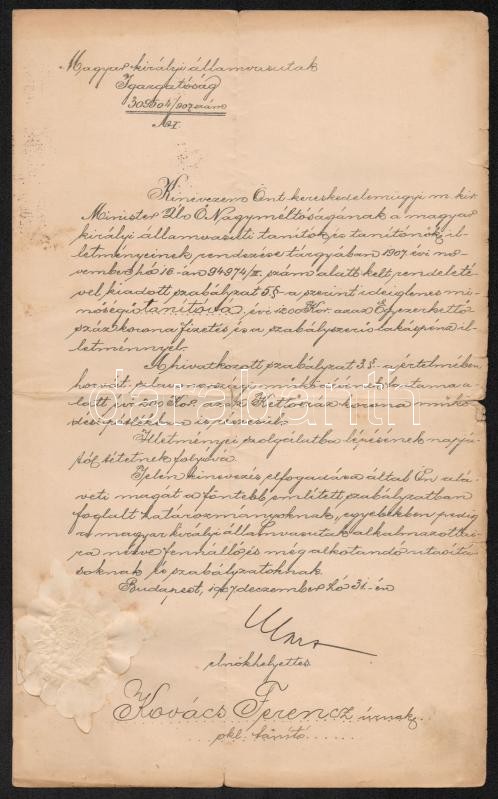 Magyar királyi államvasutak
Igazgatóság
szám
Kinevezem Önt kereskedelemügyi m. kir.
Minister Úr Ő Nagyméltóságának a magyar
királyi államvasúti tanítók és tanítónők il-
letményeinek rendezése tárgyában 1907. évi no-
vember hó 16-án 94974/III. szám alatt kelt rendeleté-
vel kiadott szabályzat 5.§-a szerint ideiglenes mi-
nőségű tanítóvá, évi 1200 Kor. azaz Egyezerkettő-
száz korona fizetés és a szabályszerű lakáspénz il-
letménnyel.
A hivatkozott szabályzat 3.§-a értelmében
horvát-szlavonországi működésének tartama a-
latt évi 200 Kor. azaz Kettőszáz korona műkö-
dési pótlékban is részesül.
Illetményei szolgálatba lépésének napjá-
tól tétetnek folyóvá.
Jelen kinevezés elfogadása által Ön alá-
veti magát a föntebb említett szabályzatban
foglalt határozmányoknak, egyebekben pedig
a magyar királyi államvasutak alkalmazottai-
ra nézve fennálló és még alkotandó utasítá-
soknak és szabályzatoknak.
Budapest, 1907 deczember hó 31-én
elnökhelyettes
Kovács Ferencz úrnak
okl. tanító
darabanth